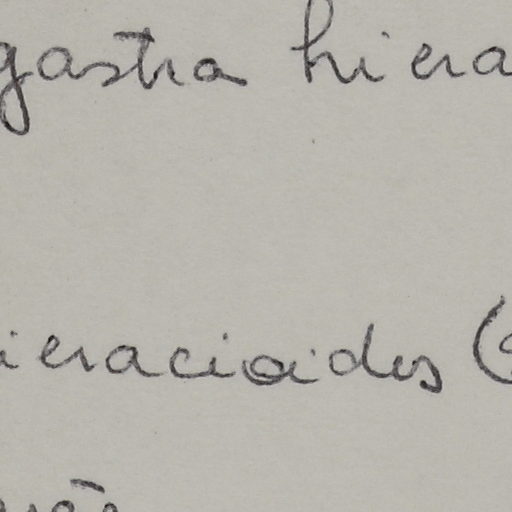 gastra hiera
ieracioides (